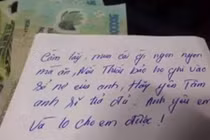 Cầm lấy, mua cái gì ngon ngon
mà ăn, Nếu Thiếu bảo họ ghi vào
Sổ nợ của anh, Hãy yên Tâm
anh sẽ trả đó. Anh yêu em
Và lo cho em được!